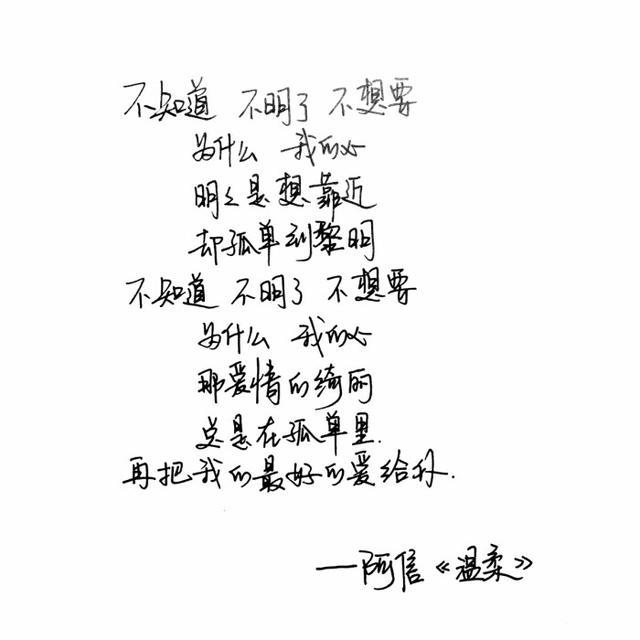 不知道 不明了 不想要
为什么 我的心
明々是想靠近
却孤单到黎明
不知道 不明了 不想要
为什么 我的心
那爱情的绮丽
总是在孤单里.
再把我的最好的爱给你.
——阿信《温柔》